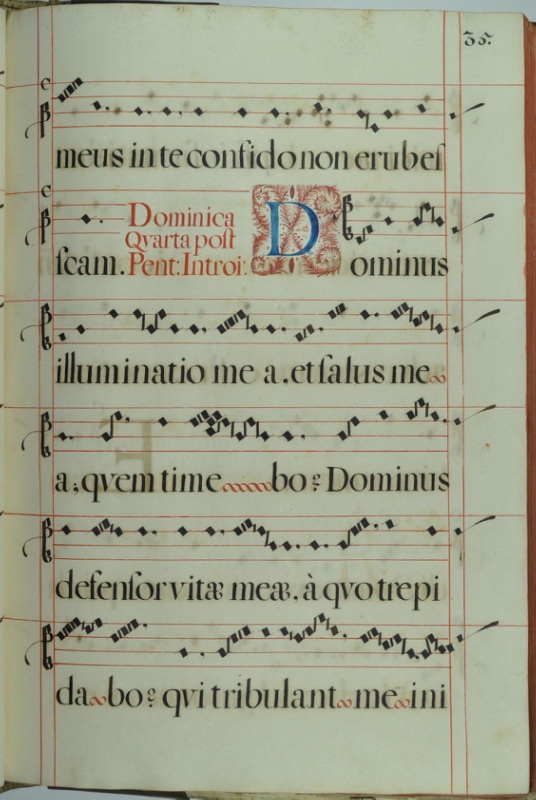 35.
meus in te confido non erubeſ
ſcam. Dominica
Qvarta poſt
Pent: Introi:
Dominus
illuminatio me a. et ſalus me
a; qvem time bo? Dominus
defenſor vitæ meæ, à qvo trepi
da bo? qvi tribulant me ini